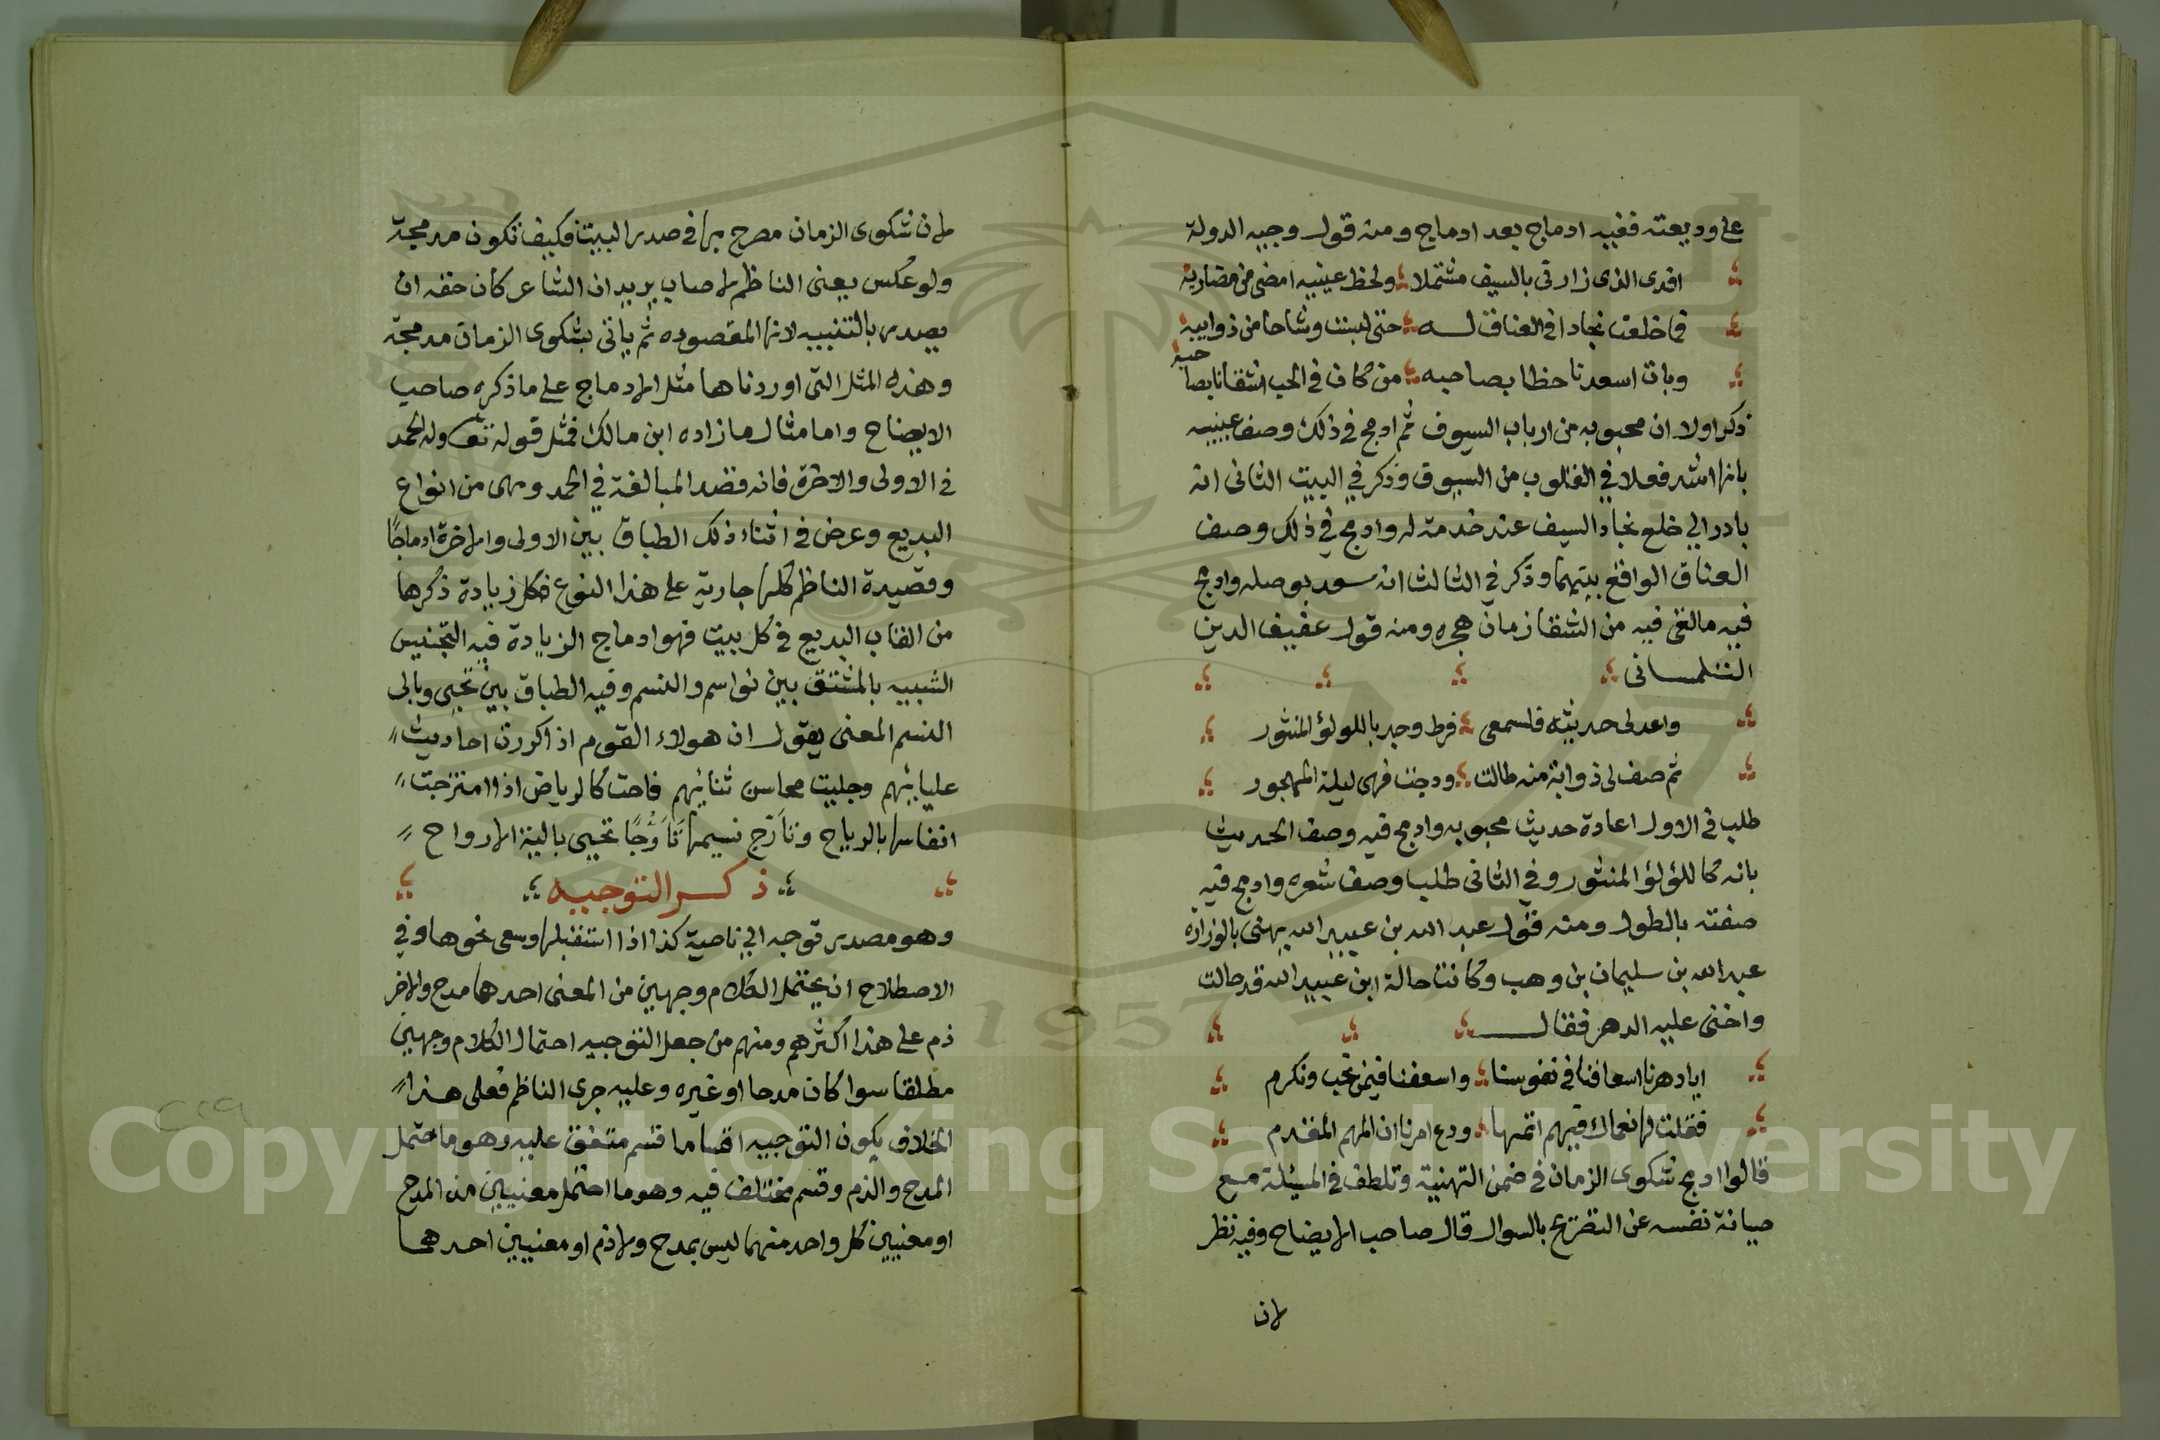 على وديعته ففيه ادماج بعد ادماج ومنه قول وجيه الدولة
افدى الذى زارنى بالسيف مشتملا ولحظ عينيه امضى من مضاربه
فما خلعت نجادا فى العناق له حتى لبست وشاحا من ذوايبه
وبات اسعدنا حظا بصاحبه من كان فى الحب اشقانا بصاحبه
ذكر اولا ان محبوبه من ارباب السيوف ثم ادمج فى ذلك وصف عينيه
بانها اشد فعلا فى القلوب من السيوف وذكر فى البيت الثانى انه
بادر الى خلع نجاد السيف عند خدمته له وادمج فى ذلك وصف
العناق الواقع بينهما وذكر فى الثالث انه سعد بوصله وادمج
فيه ما لقى فيه من الشقا زمان هجره ومنه قول عفيف الدين
التلمسانى
واعد لى حديثه فلسمعى فرط وجد باللولؤ المنثور
ثم صف لى ذوابة منه طالت ودجت فهى ليلة المهجور
طلب فى الاول اعادة حديث محبوبه وادمج فيه وصف الحديث
بانه كاللؤلؤ المنثور وفى الثانى طلب وصف شعره وادمج فيه
صفته بالطول ومنه قول عبد الله بن عبيد الله يهنى بالوزارة
عبد الله بن سليمان بن وهب وكانت حالة ابن عبيد الله قد حالت
واخنى عليه الدهر فقال
ايا دهرنا اسعافنا فى نفوسنا واسعفنا فيمن نحب ونكرم
فقلت لها نعماك فيهم اتمها ودع امرنا ان المهم المقدم
قالوا ادمج شكوى الزمان فى ضمن التهنية وتلطف فى المسئلة مع
صيانة نفسه عن التضرع بالسوال قال صاحب الايضاح وفيه نظر
لان
لان شكوى الزمان مصرح بها فى صدر البيت فكيف تكون مدمجة
ولو عكس يعنى الناظم لاصاب يريد ان الشاعر كان حقه ان
يصدر بالتنبيه لانها المقصوده ثم ياتى بشكوى الزمان مدمجة
وهذه المثل التى اوردناها مثل الادماج على ما ذكره صاحب
الايضاح واما مثال ما زاده ابن مالك فمثل قوله تعـ وله الحمد
فى الاولى والاخرة فانه قصد المبالغة فى الحمد وهى من انواع
البديع وعرض فى اثناء ذلك الطباق بين الاولى والاخرة ادماجًا
وقصيدة الناظم كلها جارية على هذا النوع فكل زيادة ذكرها
من القاب البديع فى كل بيت فهو ادماج الزيادة فيه التجنيس
الشبيه بالمشتق بين نواسم والنسم وفيه الطباق بين تحيى وبالى
النسم المعنى يقول ان هولاء القوم اذا كررت احاديث
عليايهم وجليت محاسن ثنائهم فاحت كالرياض اذا امتزجت
انفاسها بالرياح وتأرّج نسيمها تأرُّجًا تحيى بالية الارواح
ذكر التوجيه
وهو مصدر توجه الى ناصية كذا اذا استقبلها وسعى نحوها وفى
الاصطلاح ان يحتمل الكلام وجهين من المعنى احدهما مدح والاخر
ذم على هذا اكثرهم ومنهم من جعل التوجيه احتمال الكلام وجهين
مطلقا سوا كان مدحا او غيره وعليه جرى الناظم فعلى هذا
الخلاف يكون التوجيه اقساما قسم متفق عليه وهو ما احتمل
المدح والذم وقسم مختلف فيه وهو ما احتمل معنيين من المدح
او معنيين كل واحد منهما ليس بمدح ولا ذم او معنيين احدهما
1957
Copyright © King Saud University